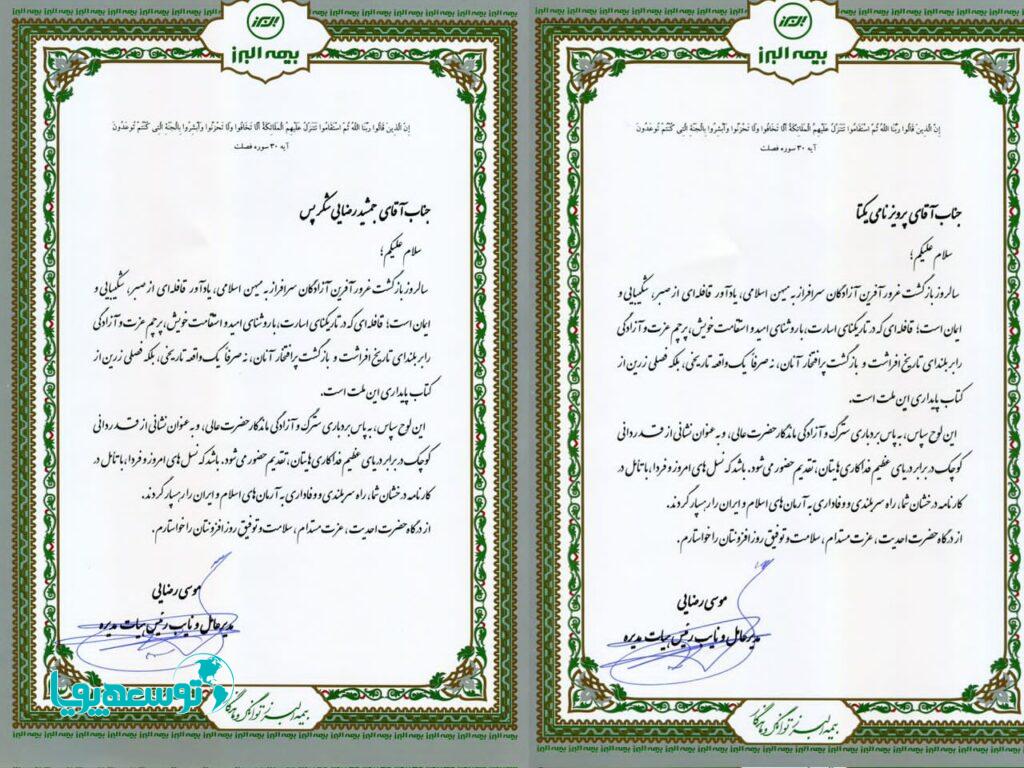 البرز
بیمه البرز
إِنَّ الَّذِينَ قَالُوا رَبُّنَا اللَّهُ ثُمَّ اسْتَقَامُوا تَتَنَزَّلُ عَلَيْهِمُ الْمَلَائِكَةُ أَلَّا تَخَافُوا وَلَا تَحْزَنُوا وَأَبْشِرُوا بِالْجَنَّةِ الَّتِي كُنْتُمْ تُوعَدُونَ
آیه ۳۰ سوره فصلت
جناب آقای پرویز نامی یکتا
سلام علیکم؛
سالروز بازگشت غرور آفرین آزادگان سرافراز به میهن اسلامی، یادآور قافله‌ای از صبر، شکیبایی و
ایمان است؛ قافله‌ای که در تاریکنای اسارت، با روشنای امید و استقامت خویش، پرچم عزت و آزادگی
را بر بلندای تاریخ افراشت و بازگشت پرافتخار آنان، نه صرفاً یک واقعه تاریخی، بلکه فصلی زرین از
کتاب پایداری این ملت است.
این لوح سپاس، به پاس بردباری سترگ و آزادگی ماندگار حضرت عالی، و به عنوان نشانی از قدردانی
کوچک در برابر دریای عظیم فداکاری هایتان، تقدیم حضور می‌شود. باشد که نسل های امروز و فردا، با تأمل در
کارنامه درخشان شما، راه سربلندی و وفاداری به آرمان های اسلام و ایران را رهسپار گردند.
از درگاه حضرت احدیت، عزت مستدام، سلامت و توفیق روز افزونتان را خواستارم.
موسی رضایی
مدیرعامل و نایب رئیس هیات مدیره
بیمه البرز توانگر و ماندگار
البرز
بیمه البرز
إِنَّ الَّذِينَ قَالُوا رَبُّنَا اللَّهُ ثُمَّ اسْتَقَامُوا تَتَنَزَّلُ عَلَيْهِمُ الْمَلَائِكَةُ أَلَّا تَخَافُوا وَلَا تَحْزَنُوا وَأَبْشِرُوا بِالْجَنَّةِ الَّتِي كُنْتُمْ تُوعَدُونَ
آیه ۳۰ سوره فصلت
جناب آقای جمشید رضایی شکر پس
سلام علیکم؛
سالروز بازگشت غرور آفرین آزادگان سرافراز به میهن اسلامی، یادآور قافله‌ای از صبر، شکیبایی و
ایمان است؛ قافله‌ای که در تاریکنای اسارت، با روشنای امید و استقامت خویش، پرچم عزت و آزادگی
را بر بلندای تاریخ افراشت و بازگشت پرافتخار آنان، نه صرفاً یک واقعه تاریخی، بلکه فصلی زرین از
کتاب پایداری این ملت است.
این لوح سپاس، به پاس بردباری سترگ و آزادگی ماندگار حضرت عالی، و به عنوان نشانی از قدردانی
کوچک در برابر دریای عظیم فداکاری هایتان، تقدیم حضور می‌شود. باشد که نسل های امروز و فردا، با تأمل در
کارنامه درخشان شما، راه سربلندی و وفاداری به آرمان های اسلام و ایران را رهسپار گردند.
از درگاه حضرت احدیت، عزت مستدام، سلامت و توفیق روز افزونتان را خواستارم.
موسی رضایی
مدیرعامل و نایب رئیس هیات مدیره
بیمه البرز توانگر و ماندگار
توسعه پویا